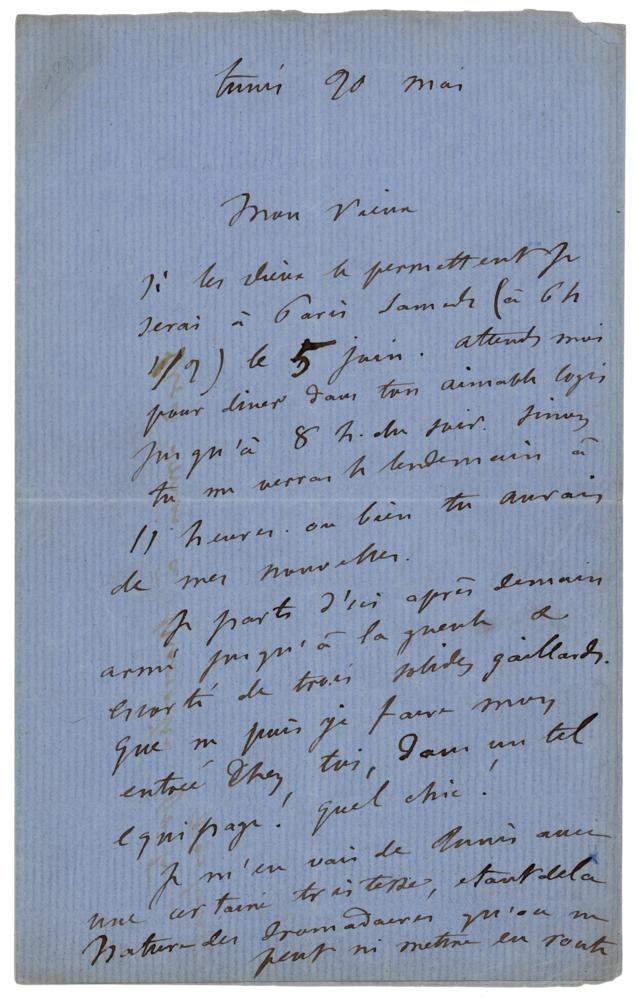 tunis 20 mai
Mon Vieux
Si les dieux le permettent je
serai à Paris Samedi (à 6 h
1/2) le 5 juin. attends moi
pour diner dans ton aimable logis
jusqu'à 8 h. du soir. sinon
tu me verras le lendemain à
11 heures. ou bien tu aurais
de mes nouvelles.
Je parts d'ici après demain
armé jusqu'à la gueule &
escorté de trois solides gaillards.
que ne puis je faire mon
entrée chez toi, dans un tel
equipage! quel chic!
Je m'en vais de Tunis avec
une certaine tristesse, etant de la
Nature des dromadaires qu'on ne
peut ni mettre en route